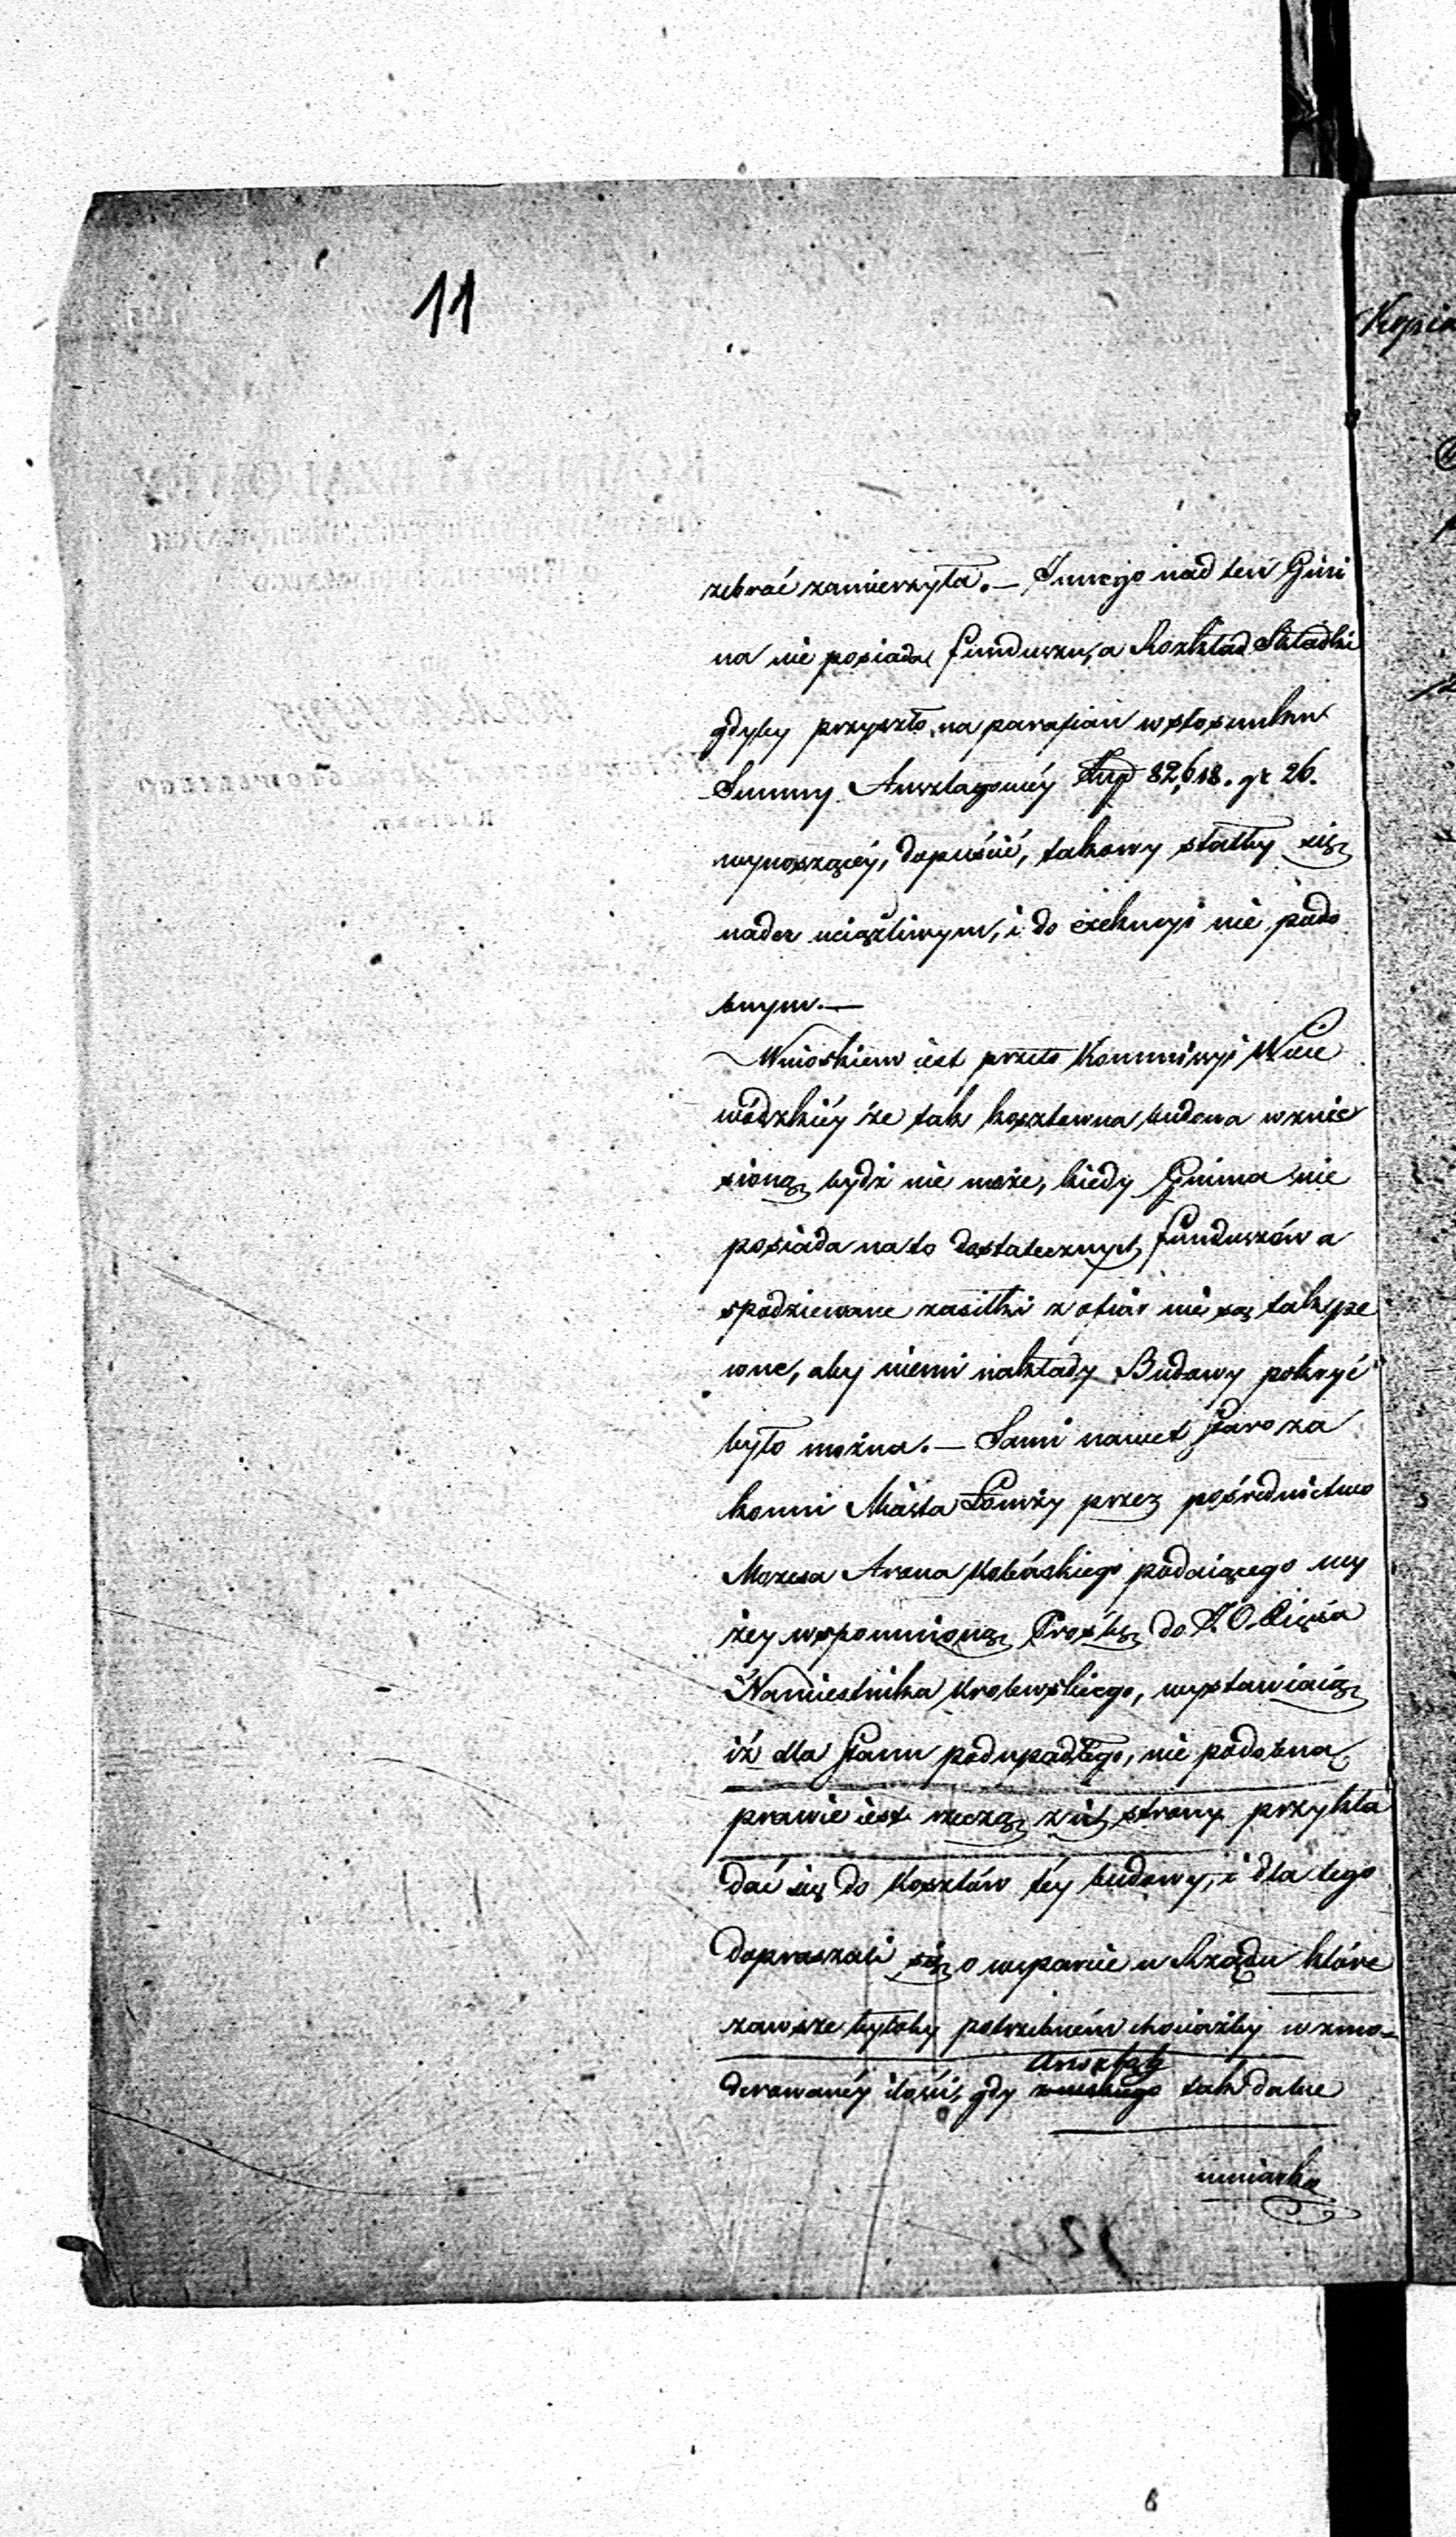 11
zebrać zamierzyła. — Innego nad ten Gmi
na nie posiada funduszu, a Rozkład Składki
gdyby przyszło na parafian w stosunku
Summy Anszlagowéy 82,618. gr 26.
wynoszącéy, dopuścić, takowy stałby się
nader uciążliwym, i do exekucyi nie podo
bnym. —
Wnioskiem iest przeto Kommissyi Woie
wódzkiéy że tak kosztowna budowa wznie
sioną bydź nie może, kiedy Gmina nie
posiada na to dostatecznych funduszów a
spodziewane zasiłki z ofiar nie są tak pe
wne, aby niemi nakłady Budowy pokryć
było można. — Sami nawet Staroza
konni Miasta Łomży przez pośrednictwo
Mozesa Arona podaiącego wy
żey wspomnioną Prośbę do J. O. Xięcia
Namiestnika Krolewskiego, wystawiaią
iż dla stanu podupadłego, nie podobną
prawie iest rzeczą z ich strony przykła
dać się do kosztów téy budowy, i dla tego
dopraszali się o wsparcie u Rządu które
zawsze byłoby potrzebném chociażby w zmo-
derowanéy ilości, gdy Anszlag tak dalece
umiarko
Kopia
6